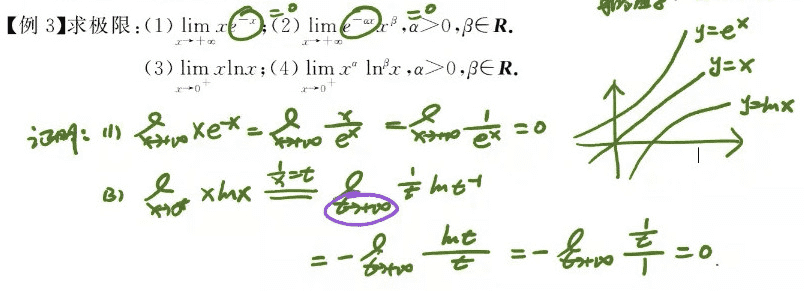 【例 3】求极限:(1) lim x→+∞ xe^{-x};(2) lim x→+∞ e^{-αx}x^β,α>0,β∈R.
=0 =0
(3) lim x→0⁺ xlnx;(4) lim x→0⁺ x^α ln^β x,α>0,β∈R.
y=e^x
y=x
y=lnx
证明: (1) lim x→+∞ xe^{-x} = lim x→+∞ x/e^x = lim x→+∞ 1/e^x = 0
(3) lim x→0⁺ xlnx (1/x=t)= lim t→+∞ 1/t ln t^{-1}
= - lim t→+∞ lnt/t = - lim t→+∞ (1/t)/1 = 0.